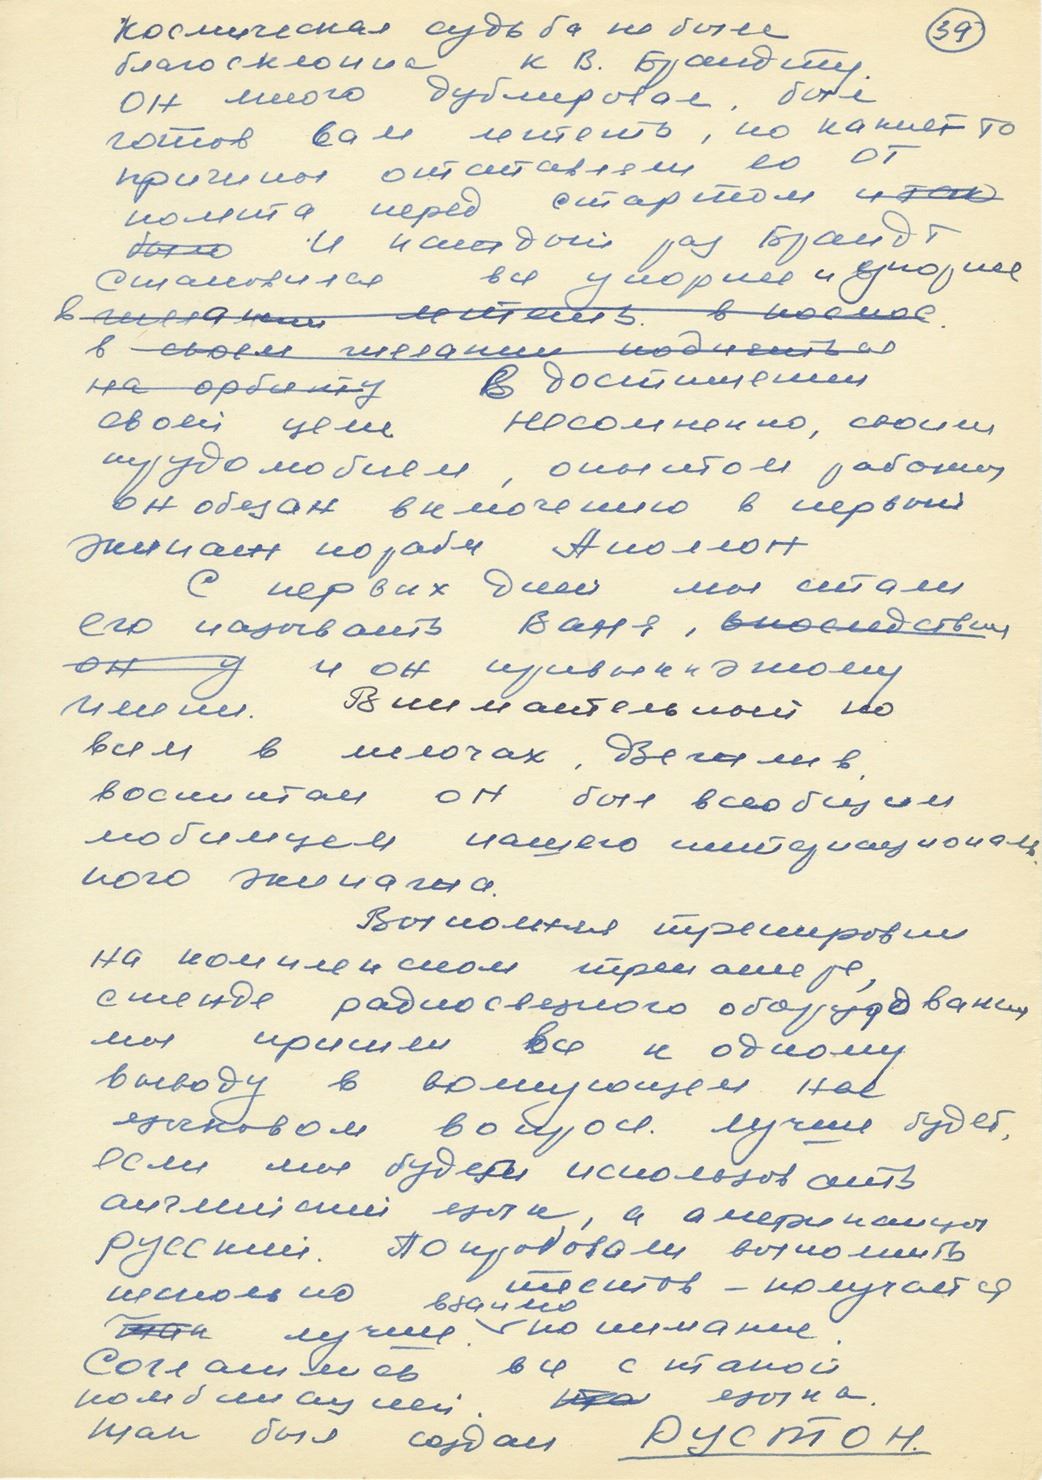 39
Космическая судьба не была
благосклонна к В. Брандту.
Он много дублировал, был
готов сам лететь, но какие-то
причины отставляли его от
полета перед стартом и так
было И каждый раз Брандт
становился все упорнее и упорнее
в желании лететь в космос.
в своем желании подняться
на орбиту В достижении
своей цели Несомненно, своим
трудолюбием, опытом работы
он обязан включению в первый
экипаж корабля Аполлон
С первых дней мы стали
его называть Ваня, впоследствии
он у и он привык к этому
имени. Внимательный во
всем в мелочах, Вежлив,
воспитан он был всеобщим
любимцем нашего интернациональ-
ного экипажа.
Выполняя тренировки
на комплексном тренажере,
стенде радиосвязного оборудования
мы пришли все к одному
выводу в волнующем нас
языковом вопросе. Лучше будет,
если мы будем использовать
английский язык, а американцы
русский. Попробовали выполнить
несколько тестов – получается
так лучше взаимопонимание.
Согласились все с такой
комбинацией. языка.
Так был создан РУСТОН.